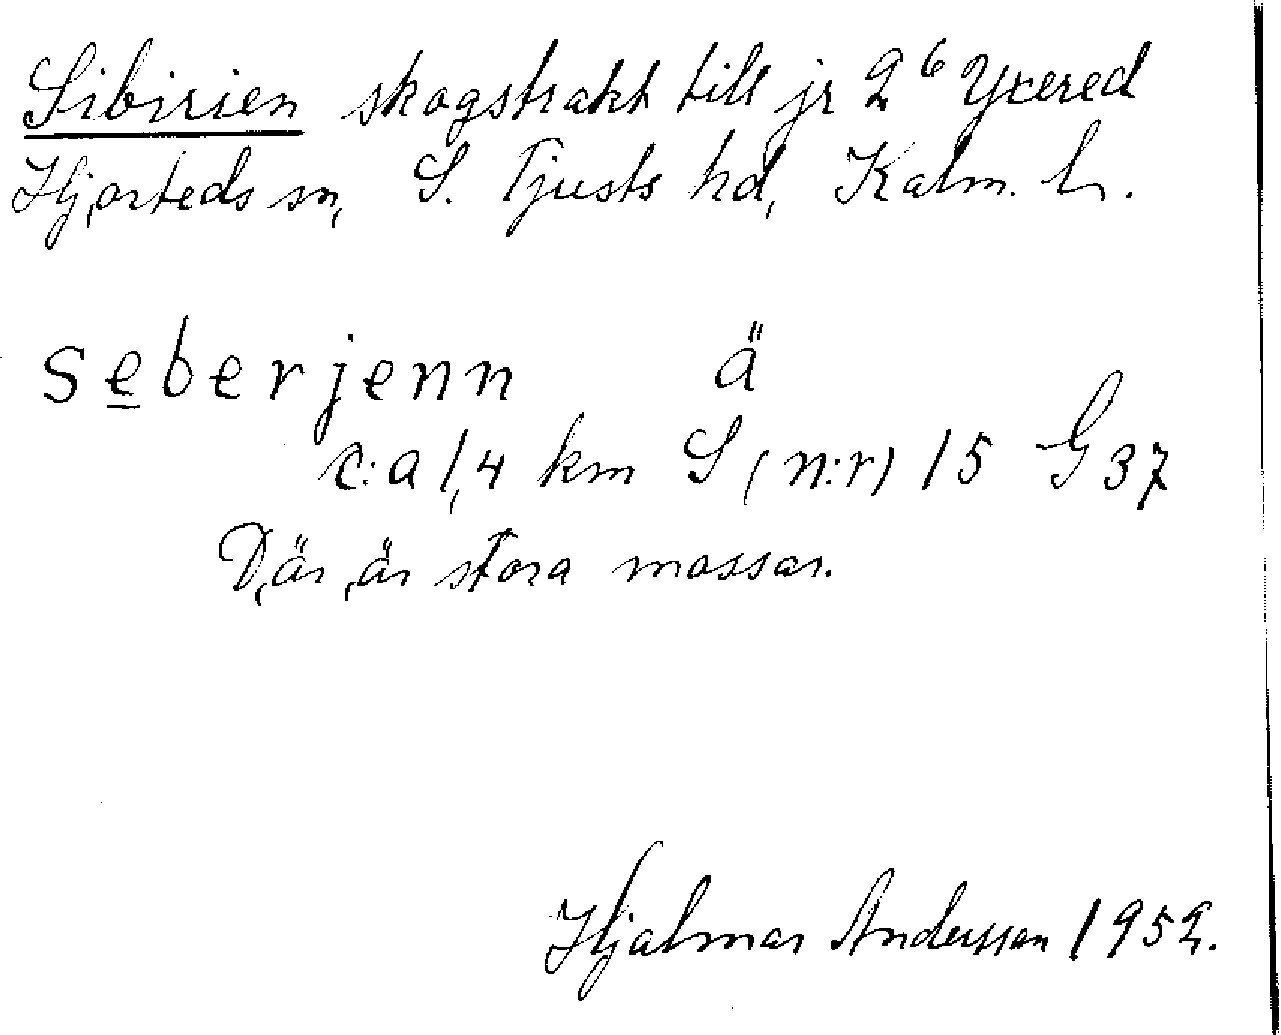 Sibirien skogstrakt till jr 2⁶ Yxered
Hjorteds sn, S. Tjusts hd, Kalm. l.
seberjenn ä
c:a 1,4 km S (n:r) 15 G 37
Där är stora mossar.
Hjalmar Andersson 1952.